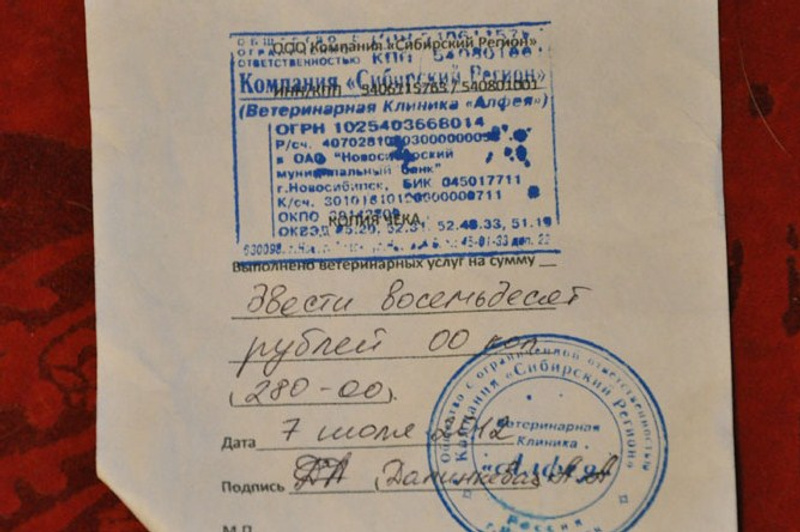 ООО Компания «Сибирский Регион»
ОТВЕТСТВЕННОСТЬЮ КПП
Компания «Сибирский Регион»
ИНН/КПП 5406115765 / 540801001
(Ветеринарная Клиника «Алфея»)
ОГРН 1025403668014
Р/сч.
в ОАО "Новосибирский
муниципальный банк"
г.Новосибирск, БИК 045017711
К/сч.
КОПИЯ ЧЕКА
ОКПО
ОКВЭД 52.31, 52.48.33, 51.19
630098, 45-01-33 доп. 22
Выполнено ветеринарных услуг на сумму
двести восемьдесят
рублей 00 коп
(280-00).
Дата 7 июля 12
Подпись
М.П.
Общество с ограниченной ответственностью
Компания «Сибирский Регион»
Ветеринарная
Клиника
«Алфея»
Россия